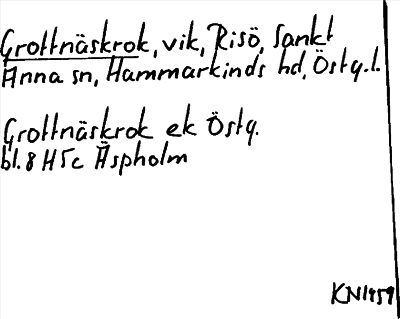 Grottnäskrok, vik, Risö, Sankt
Anna sn, Hammarkinds hd, Östg.l.
Grottnäskrok ek Östg.
bl. 8 H 5c Äspholm
KN1959